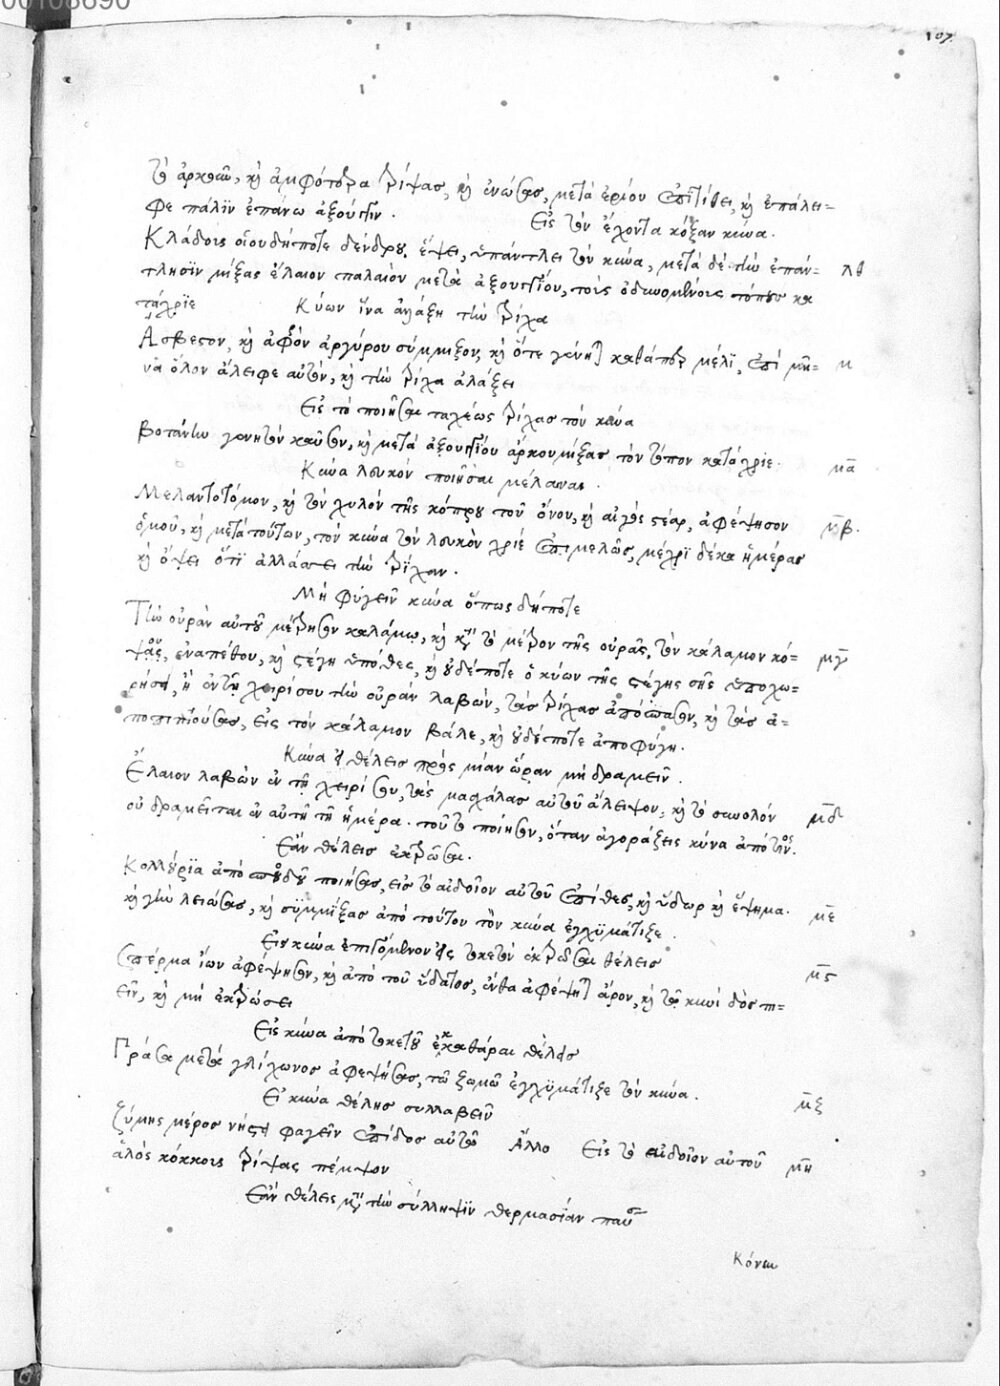 00108690
107.
τὸ ἀρκτῶον, καὶ ἀμφότερα τρίψας, καὶ ἑνώσας, μετὰ ἐρίου ἐπιτίθει, καὶ ἐπάλει=
φε πάλϊν ἐπάνω ἀξούγγιν. Εἰς τὸν ἔχοντα κόρξαν κύνα.
Κλάδοις οἱουδήποτε δένδρου ἕψει, ὑπάντλει τὸν κύνα, μετὰ δὲ τὴν ἐπάν= λθ
τλησϊν μίξας ἔλαιον παλαιὸν μετὰ ἀξουγγίου, τοῖς ὀδυνομένοις τόποις κα
τάχρϊε Κύων ἵνα ἀλάξη τὴν τρίχα
Ἄσβεστον, καὶ ἀφρὸν ἀργύρου σύμμιξον, καὶ ὅτε γένηται καθάπερ μέλϊ, ἐπὶ μῆ= μ
να ὅλον ἄλειφε αὐτὸν, καὶ τὴν τρίχα ἀλάξει
Εἰς τὸ ποιῆσαι ταχέως τρίχας τὸν κύνα
Βοτάνην γεννητὸν καῦσον, καὶ μετὰ ἀξουγγίου ἀρκου μίξας τὸν τόπον κατάχριε. μα
Κύνα λευκὸν ποιῆσαι μέλαναι.
Μελαντοτόμον, καὶ τὸν χυλὸν τῆς κόπρου τοῦ ὄνου, καὶ αἰγὸς στέαρ, ἀφέψησον μβ.
ὁμοῦ, καὶ μετὰ τούτων, τὸν κύνα τὸν λευκὸν χρίε ἐπιμελῶς, μέχρϊ δέκα ἡμέρας
καὶ ὄψει ὅτϊ ἀλλάσσει τὴν τρίχαν.
Μὴ φυγεῖν κύνα ὅπως δήποτε
Τὴν οὐρὰν αὐτοῦ μέτρησον καλάμω, καὶ κατὰ τὸ μέτρον τῆς οὐρᾶς, τὸν κάλαμον κό= μγ
ψας, ἐναπέθου, καὶ στέγη ὑπόθες, καὶ οὐδέποτε ὁ κύων τῆς στέγης σῆς ὑποχω=
ρήσει, ἢ ἐν τῆ χειρί σου τὴν οὐρὰν λαβὼν, τὰς τρίχας ἀπόσπασον, καὶ τὰς ἀ=
ποπιπτούσας, εἰς τὸν κάλαμον βάλε, καὶ οὐδέποτε ἀποφύγη.
Κύνα εἰ θέλεις πρὸς μίαν ὥραν μὴ δραμεῖν.
Ἔλαιον λαβὼν ἐν τῆ χειρί σου, τὰς μασχάλας αὐτοῦ ἄλειψον, καὶ τὸ σύνολον μδ
οὐ δραμεῖται ἐν αὐτῆ τῆ ἡμέρα. τοῦτο ποίησον, ὅταν ἀγοράζεις κύνα ἀπό τινος.
Ἐὰν θέλεις ἐκτρῶσαι.
Κολλύρϊα ἀπὸ σπουδοῦ ποιήσας, εἰς τὸ αἰδοῖον αὐτοῦ ἐπίθες, καὶ ὕδωρ καὶ ἕψημα. με
καὶ γῆν λειώσας, καὶ σϋμμίξας ἀπὸ τούτου τὸν κύνα ἐγχϋμάτιζε.
Εἰς κύνα ἐπιτόμενον ἐξ τοκετὸν ἐκτρῶσαι θέλεις
Σπέρμα ἴων ἀφέψησον, καὶ ἀπὸ τοῦ ὕδατος, ἔνθα ἀφέψηται ἆρον, καὶ τῶ κυνὶ δὸς πι= μς
εῖν, καὶ μὴ ἐκτρώσει
Εἰς κύνα ἀπὸ τοκετοῦ ἐκκαθάραι θέλεις
Πράσα μετὰ γλίχωνος ἀφεψήσας, τῶ ζωμῶ ἐγχϋμάτιζε τὸν κύνα. μζ
Εἰ κύνα θέλης συλλαβεῖν
Ζύμης μέρος νήστει φαγεῖν ἐπίδος αὐτῶ Ἄλλο Εἰς τὸ αἰδοῖον αὐτοῦ μη
ἁλὸς κόκκοις τρίψας πέμψον
Ἐὰν θέλεις μετὰ τὴν σύλληψϊν θερμασίαν παῦσαι
Κόνιν